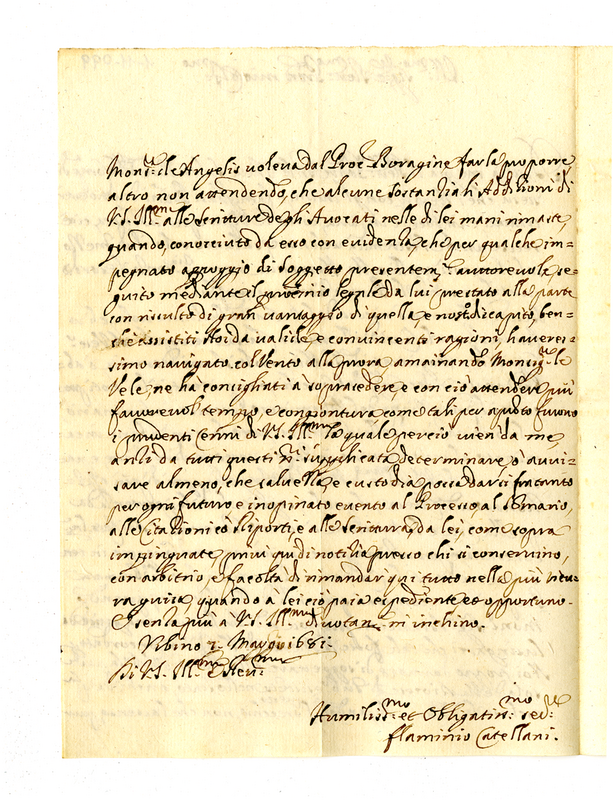 Mons.r de Angelis voleva dal Proc.e Boragine farla proporre
altro non attendendo, che alcune sostantiali Additioni di
V.S. Ill.ma alle scritture degli Avocati nelle di lei mani rimaste,
quando, conosciuto da esso con evidenza, che per qualche im=
pegnato appoggio di soggetto presentem.te auttorevole, se=
guito mediante il patrocinio legale da lui prestato alla parte
con risulto di gran vantaggio di quella, e nostro discapito, ben=
che assistiti Noi da valide, e convincenti ragioni, havares=
simo navigato col Vento alla prova, amainando Mons.r le
Vele, ne ha consigliati a soprasedere, e con ciò attendere più
favorevol tempo, e congiontura, come tali per apunto furono
i prudenti Cenni di V.S. Ill.ma la quale perciò vien da me,
anzi da tutti questi supplicata determinare, ò avvi=
sare almeno, che salvezza, e custodia possa darsi fratanto
per ogni futuro e inopinato evento al Processo, al Somario,
alle Citationi, e alle scritture, da lei, come sopra
impinguate, previa quì di notitia presso chi si conservino,
con arbitrio, e facoltà di rimandar quì tutto nella più sicu=
ra guisa, quando à lei ciò paia espediente, et opportuno.
E senza più a V.S. Ill.ma divotam.te m'inchino.
Urbino 1. Maggio 1681.
Di V.S. Ill.ma
Humiliss.mo et Obligatiss.mo ser.re
Flaminio Catellani.